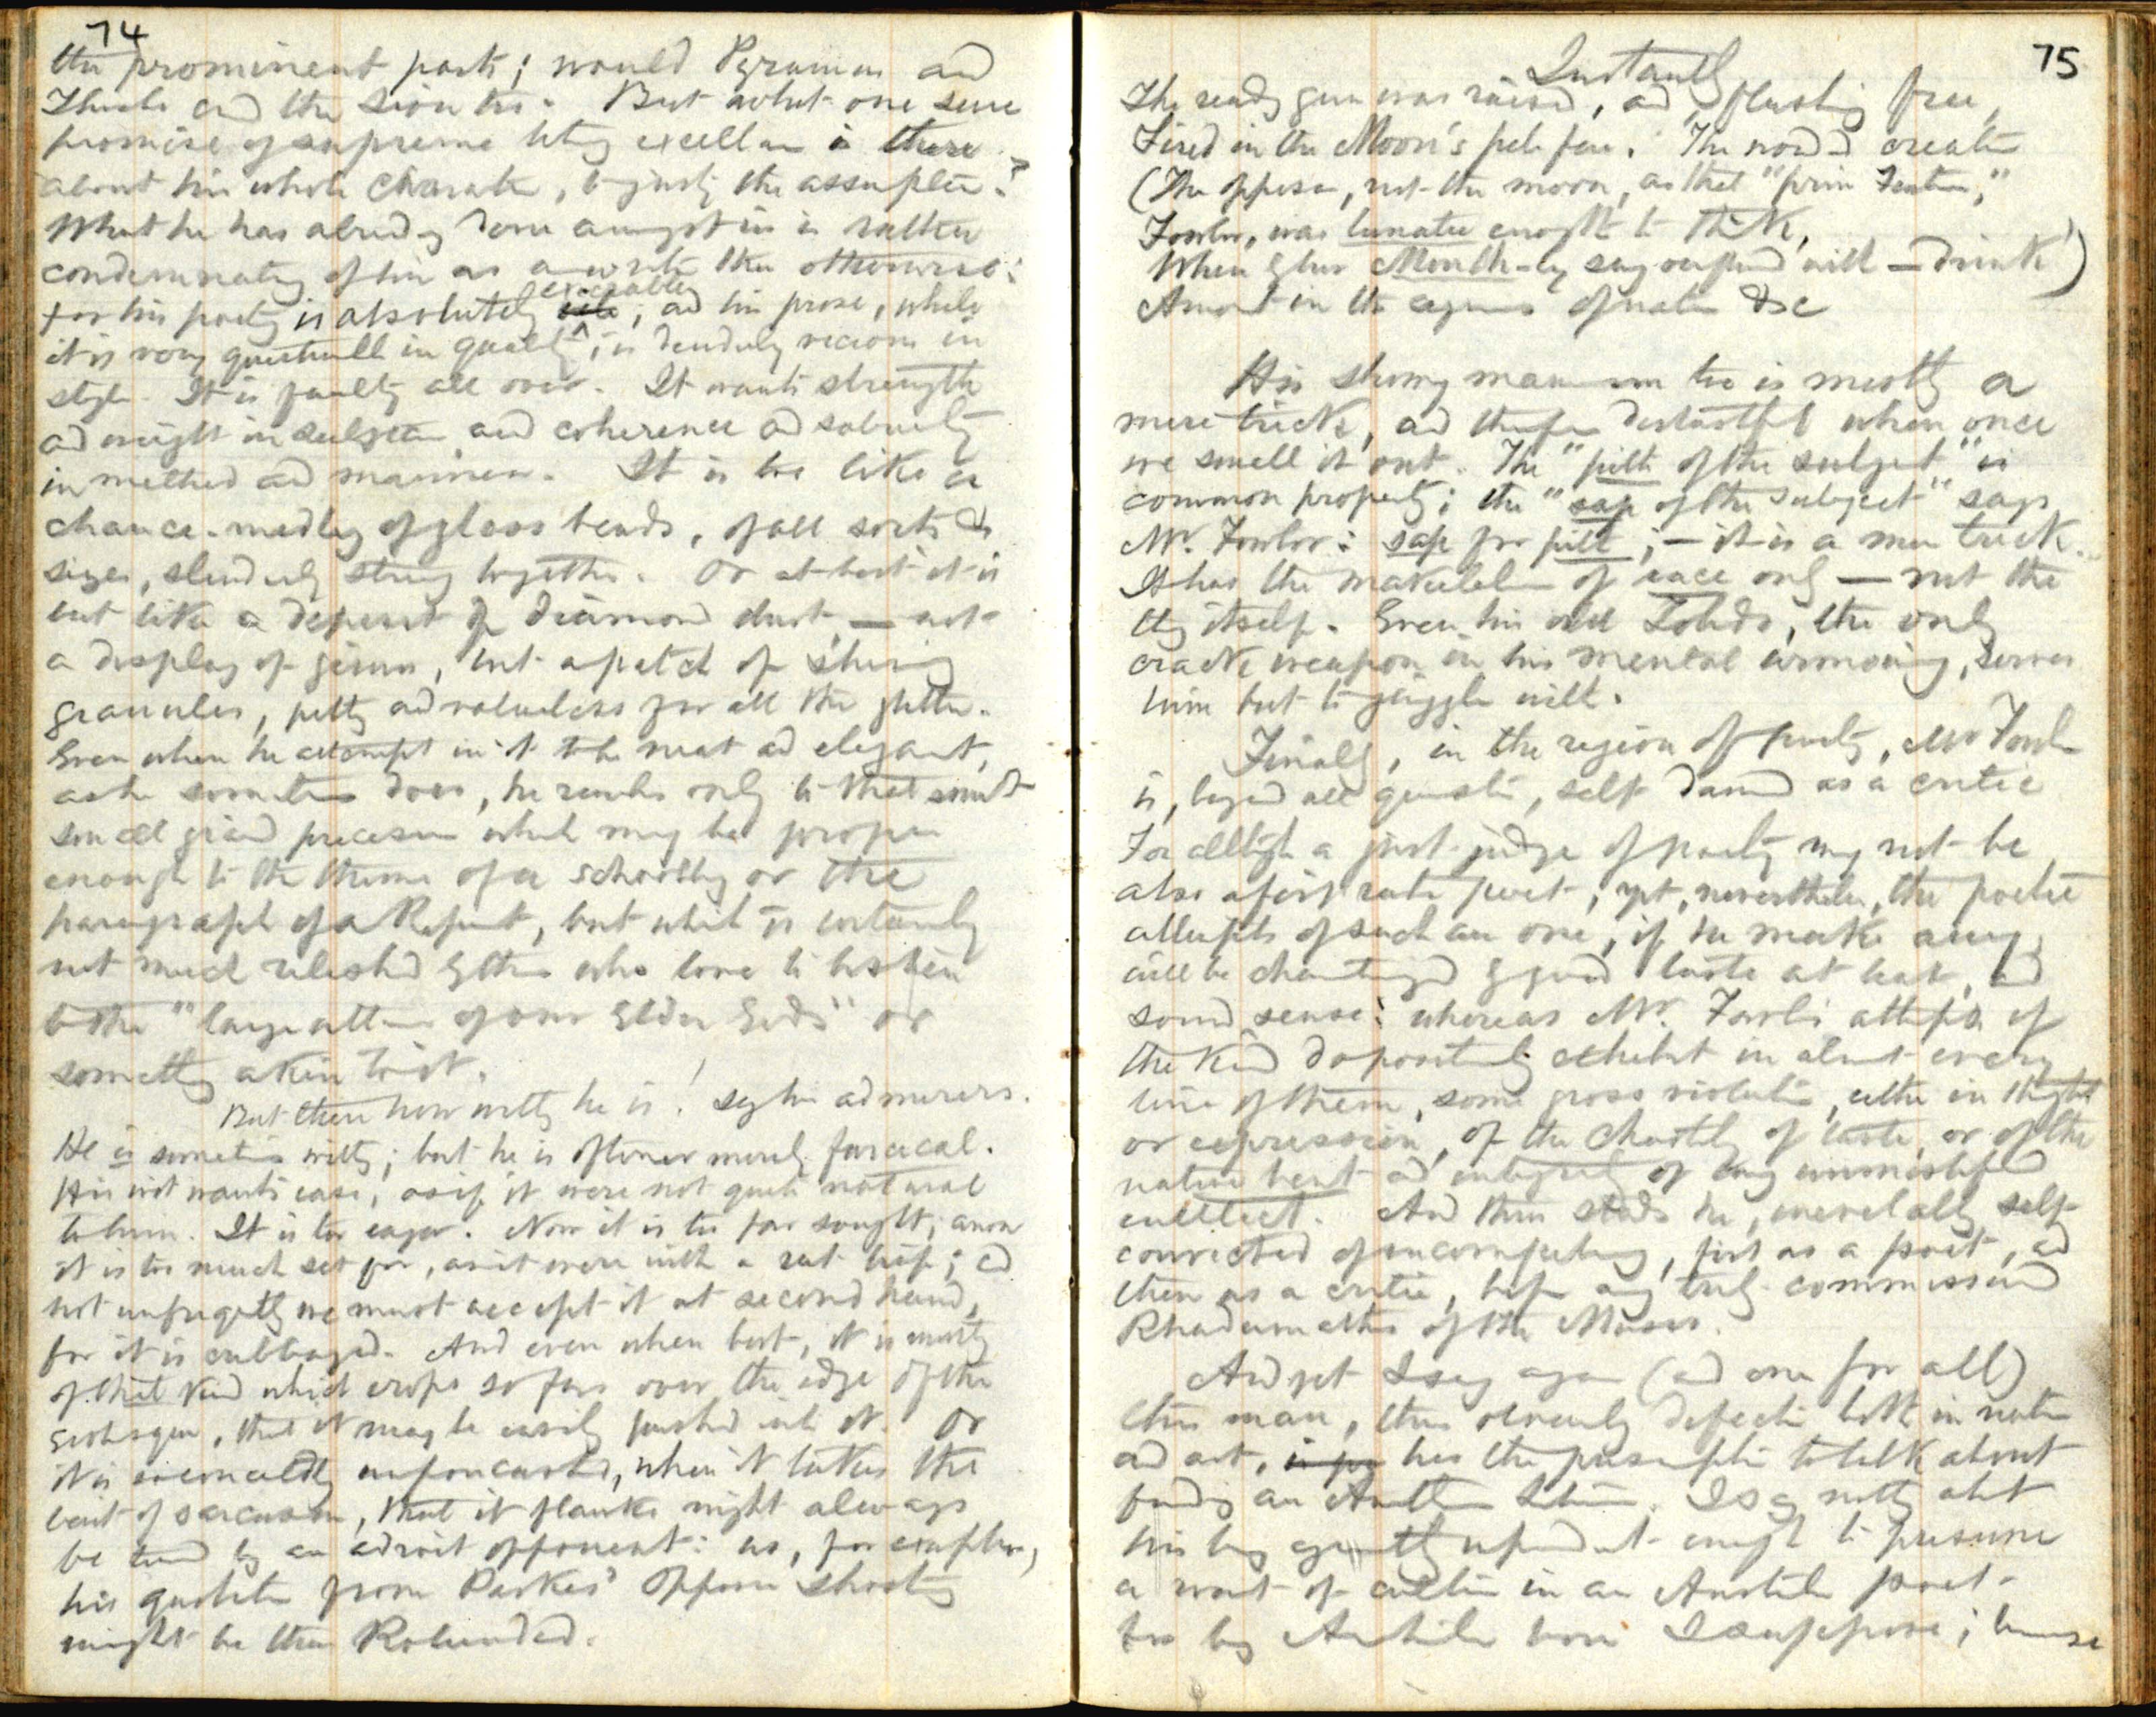 74
the prominent parts; would Pyramus and
Thisbe and the Lion too. But what one sure
promise of supreme excellence is there
about his whole character, to justify the assumption?
What he has already done amongst us is rather
condemnatory of him as a writer than otherwise:
for his poetry is absolutely execrable; and his prose, while
it is very in quality, is decidedly vicious in
style. It is faulty all over. It wants strength
and weight in substance and coherence and sobriety
in method and manner. It is too like a
chance-medley of glass beads, of all sorts &
sizes, slenderly strung together. Or at best it is
but like a deposit of diamond dust, — not
a display of gems, but a patch of shining
granules, petty and valueless for all the glitter.
Even when he attempts in it to be neat and elegant,
as he sometimes does, he reaches only to that
small precision which may be proper
enough to the theme of a schoolboy or the
paragraph of a Report, but which is certainly
not much relished by those who love to listen
to the "large utterance of our Elder Gods" or
something akin to it.
But then how witty he is! say his admirers.
He is sometimes witty; but he is oftener merely farcical.
His wit wants ease, as if it were not quite natural
to him. It is too eager. Now it is too far sought; anon
it is too much set for, as it were with a rat trap; and
not unfrequently we must accept it at second hand,
for it is cabbaged. And even when best, it is mostly
of that kind which crops so far over the edge of the
grotesque, that it may be easily pushed into it. Or
it is so when it takes the
bent of sarcasm, that it flanks might always
be turned by an adroit opponent: as, for example,
his quotation from Parkes' Opossum Shooting
might be thus Rebounded.
75
Instantly
The ready gun was raised, and, flashing free,
Fired in the Moon's pale face. The wounded creature
(The opposum, not the moon, as that "prim Teature,"
Fowler, was lunatic enough to think,
When by his Month-ly with — drink)
Amort in the agonies of nature &c
His too is mostly a
mere trick, and therefore distasteful when once
we smell it out. The "pith of the subject" is
common property; the "sap of the subject" says
Mr. Fowler: sap for pith; — it is a mere trick.
It has the of race only — not the
thing itself. Even his old Lords, the only
crack weapon in his mental armoury, serves
him but to giggle with.
Finally, in the region of poetry, Mr Fowler
is, beyond all question, self damned as a critic
For although a just judge of poetry may not be
also a first rate poet, yet, nevertheless, the poetic
attempts of such an one, if he make any,
will be characterized by good taste at least, and
sound sense: whereas Mr. Fowler's attempts of
the kind do positively exhibit in almost every
line of them, some gross violation, either in thought
or expression, of the chastity of taste, or of the
native bent and integrity of any unmistified
intellect. And thus stands he, self-
convicted of incompetency, first as a poet, and
then as a critic, before any truly commissioned
Rhadamanthus of the Muses.
And yet I say again (and once for all)
this man, thus defective both in nature
and art, has the presumption to talk about
finding an Author. I say nothing about
his being enough to presume
a want of culture in an Australian poet
for being Australian born I suppose; because